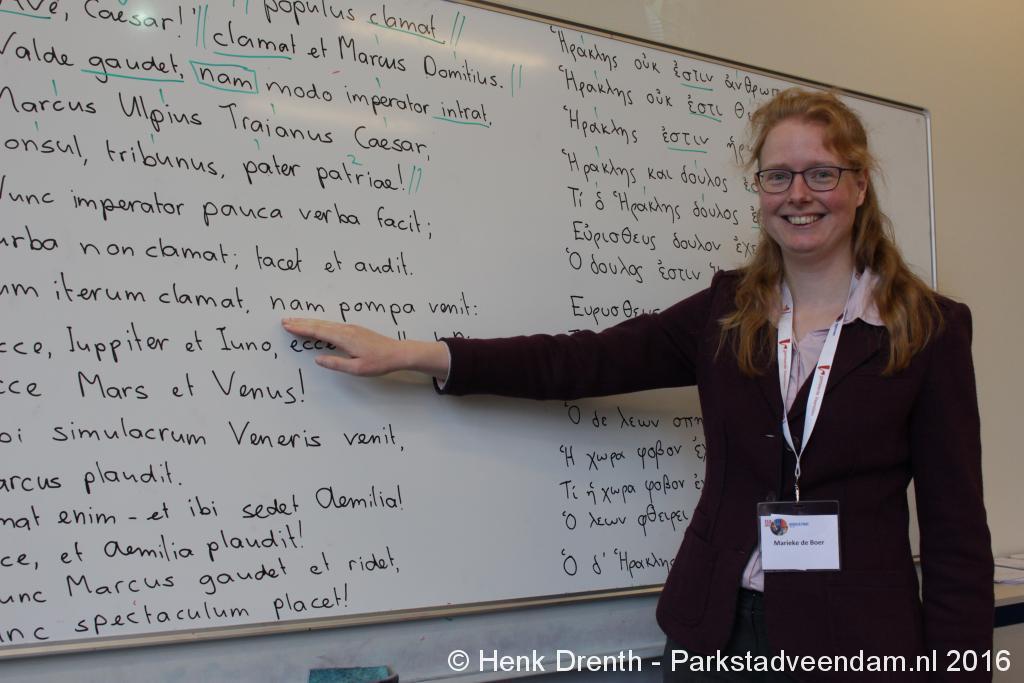 Ave, Caesar!" || "populus clamat ||
clamat et Marcus Domitius. ||
Valde gaudet, nam modo imperator intrat,
Marcus Ulpius Traianus Caesar,
consul, tribunus, pater patriae! ||
Nunc imperator pauca verba facit;
turba non clamat; tacet et audit.
iterum clamat, nam pompa venit:
Ecce, Iuppiter et Iuno, ecce
Ecce Mars et Venus!
simulacrum Veneris venit,
Marcus plaudit.
enim - et ibi sedet Aemilia!
Ecce, et Aemilia plaudit!
Nunc Marcus gaudet et ridet,
spectaculum placet!
Ἡράκλης οὐκ ἔστιν
Ἡράκλης οὐκ ἔστι
Ἡράκλης ἔστιν
Ἡράκλης και δούλος
Τί ὁ Ἡράκλης δούλος
Εὐρισθευς δουλον
Ὁ δουλος ἔστιν
Εὐρυσθευς
Ὁ δε λεων
Ἡ χωρα φοβον
Τί ἡ χωρα φοβον
Ὁ λεων φθειρει
Ὁ δ' Ἡράκλης
Marieke de Boer
© Henk Drenth - Parkstadveendam.nl 2016